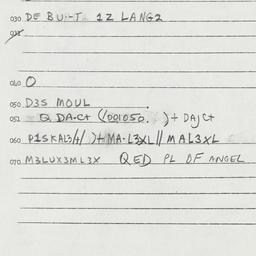 030 DE BUILT 1Z LANG2
040 O
050 D3S MOUL
051 Q DA·C+ (001050. )+ DAJC+
060 P1SKAL3/+/ )+MA·L3XL//MAL3XL
070 M3LUX3ML3X QED PL OF ANGEL